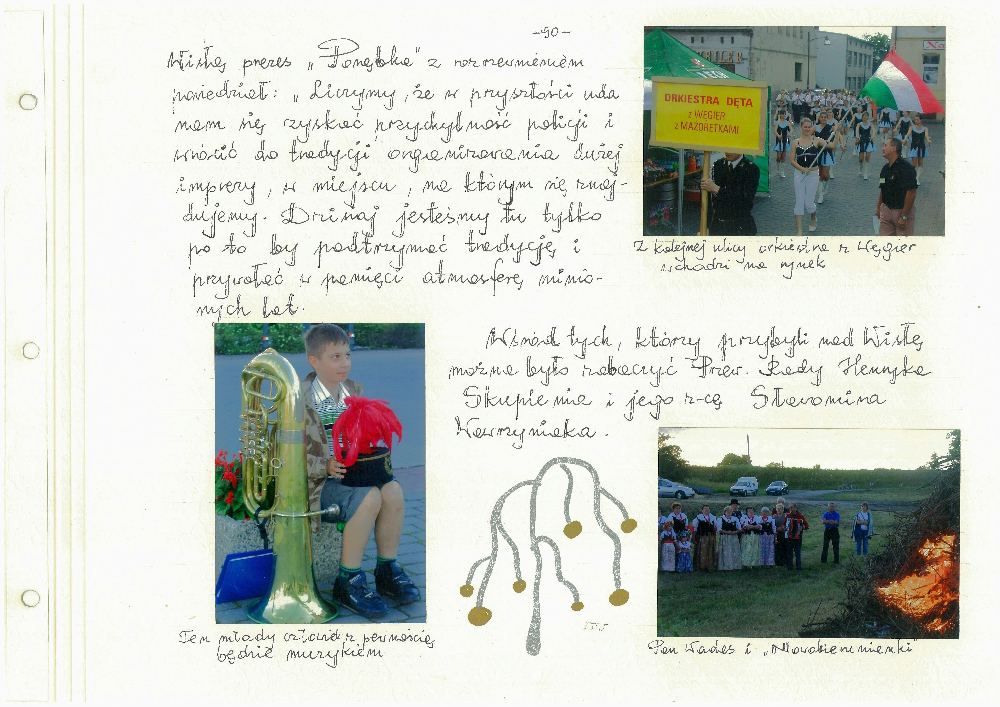 -90-
Wisłę prezes „Porębka" z rozrzewnieniem
powiedział: „Liczymy, że w przyszłości uda
nam się zyskać przychylność policji i
wrócić do tradycji organizowania dużej
imprezy, w miejscu, na którym się znaj-
dujemy. Dzisiaj jesteśmy tu tylko
po to by podtrzymać tradycję i
przywołać w pamięci atmosferę minio-
nych lat.
ORKIESTRA DĘTA
z WĘGIER
z MAŻORETKAMI
Z kolejnej ulicy orkiestra z Węgier
wchodzi na rynek
Wśród tych, którzy przybyli nad Wisłę
można było zobaczyć Przew. Rady Henryka
Skupienia i jego z-cę Sławomira
Wawrzyniaka.
Ten młody człowiek z pewnością
będzie muzykiem
Pan Wadas i „Nowobierunianki"